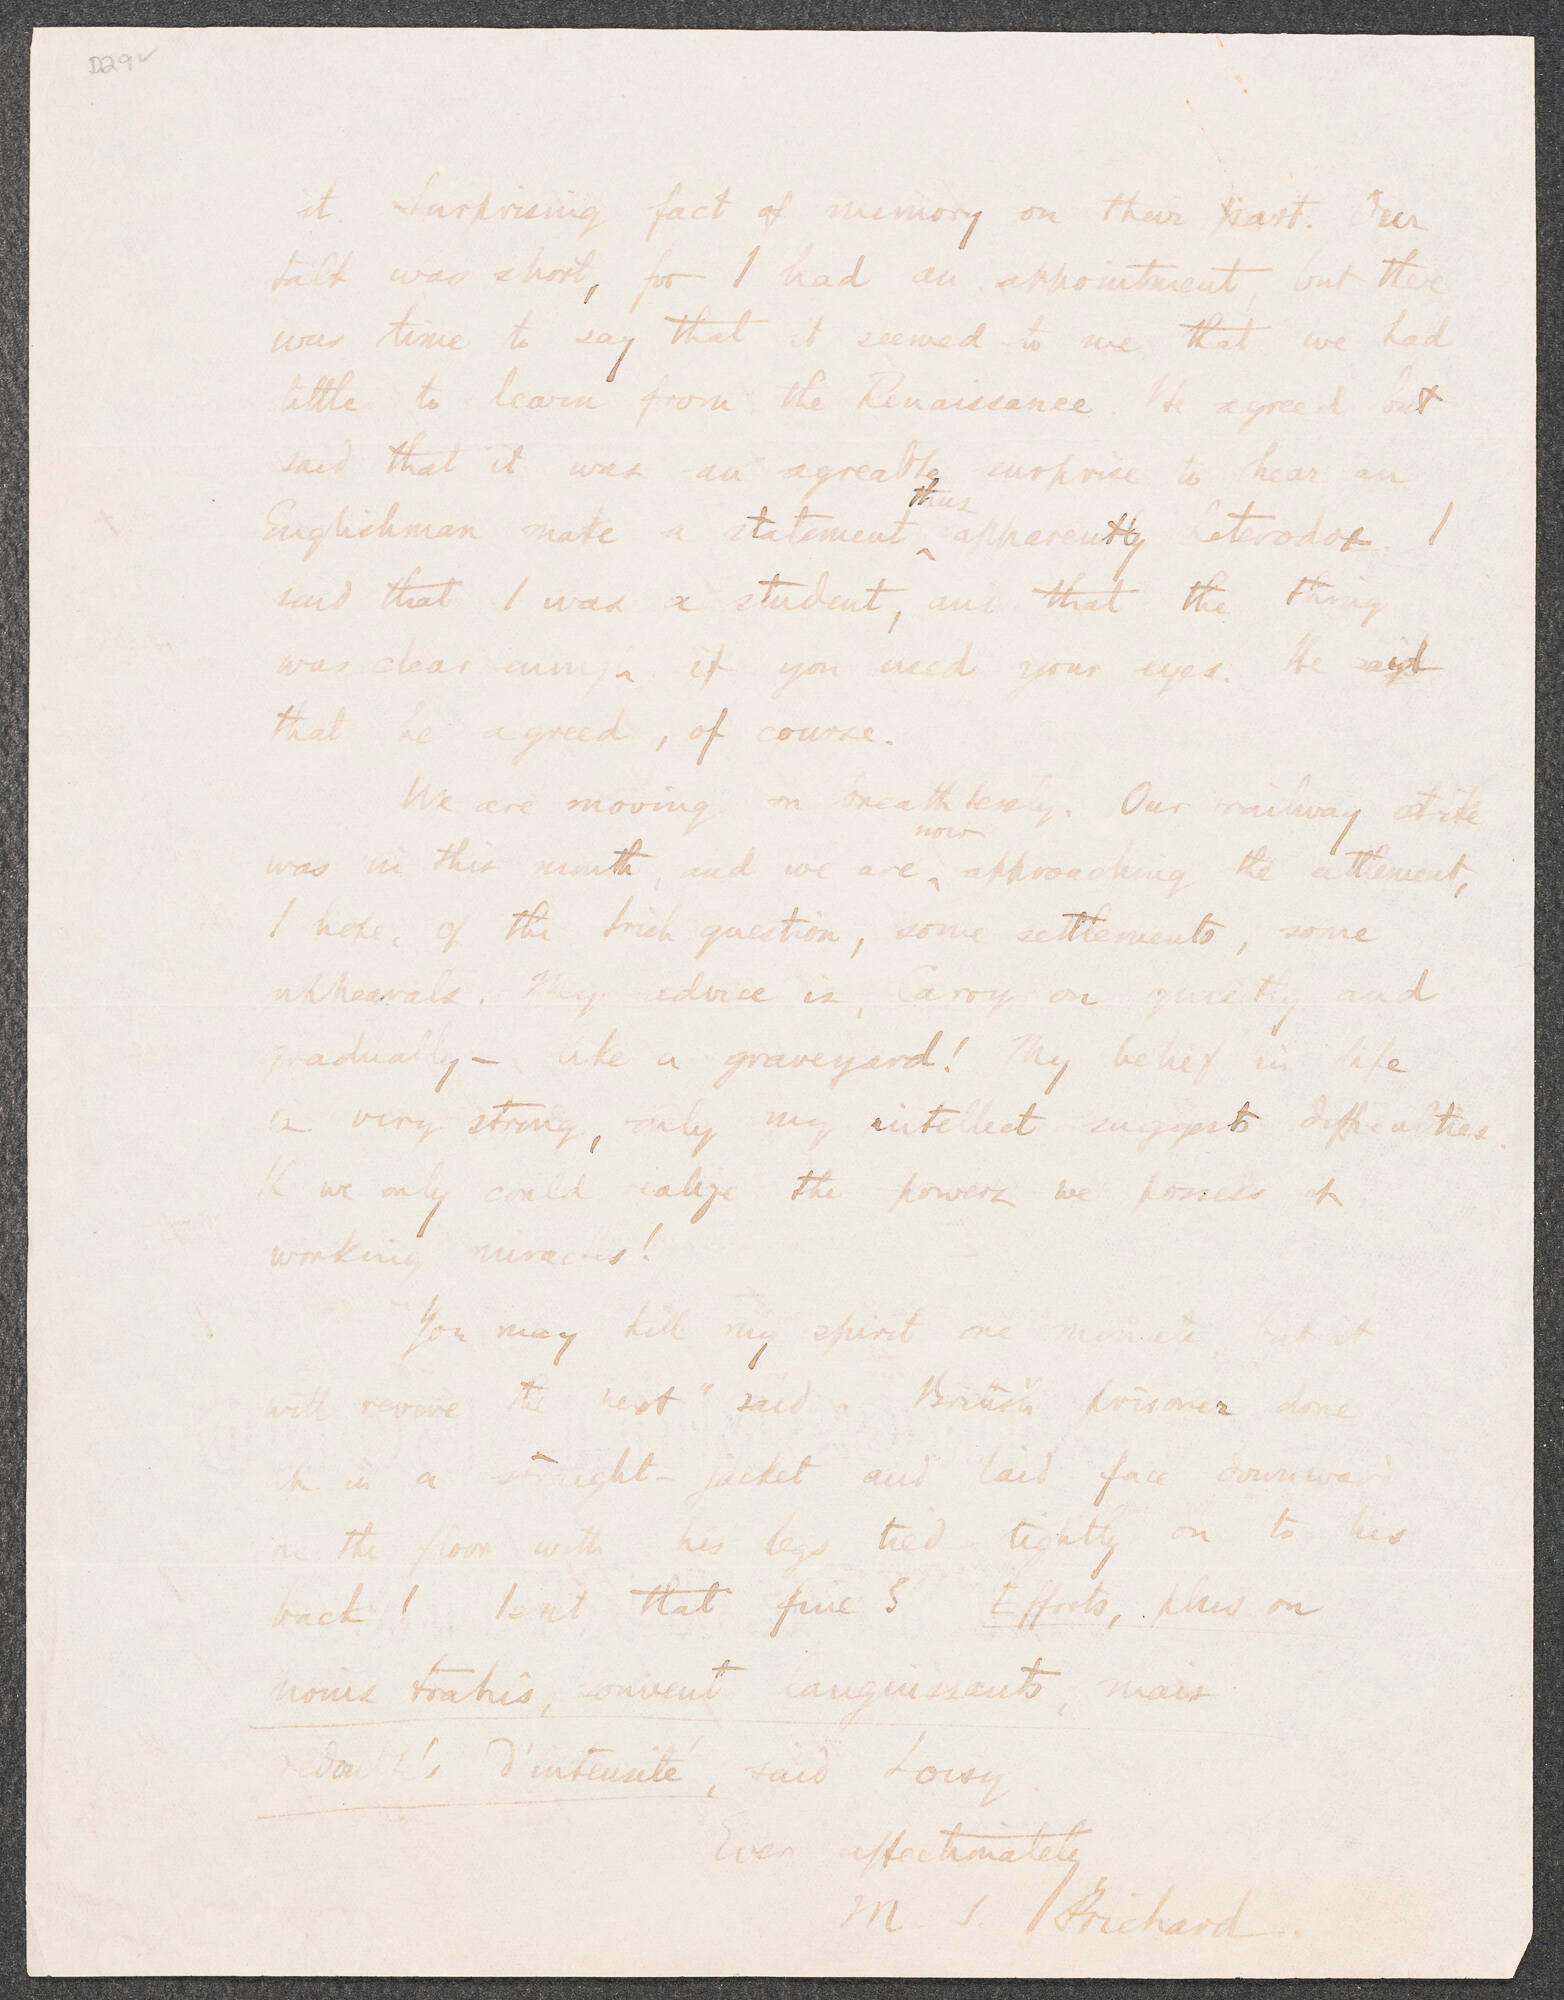 D29v
it. Surprising fact of memory on their part. Our
talk was short, for I had an appointment, but there
was time to say that it seemed to me that we had
little to learn from the Renaissance. He agreed but
said that it was an agreable surprise to hear an
Englishman make a statement thus apparently heterodox. I
said that I was a student, and that the thing
was clear enough if you used your eyes. He said
that he agreed, of course.
We are moving on breathlessly. Our railway strike
was in this month, and we are now approaching the settlement,
I hope, of the Irish question, some settlements, some
upheavals. My advice is, Carry on quietly and
gradually – like a graveyard! My belief in life
is very strong, only my intellect suggests difficulties.
If we only could realize the powers we possess of
working miracles!
"You may kill my spirit one minute, but it
will revive the next" said a British prisoner done
up in a straight-jacket and laid face downward
on the floor with his legs tied tightly on to his
back! Isnt that fine? Efforts, plus ou
moins trahis, souvent languissants, mais
redoublés d'intensité, said Loisy.
Ever affectionately
M. S. Prichard.